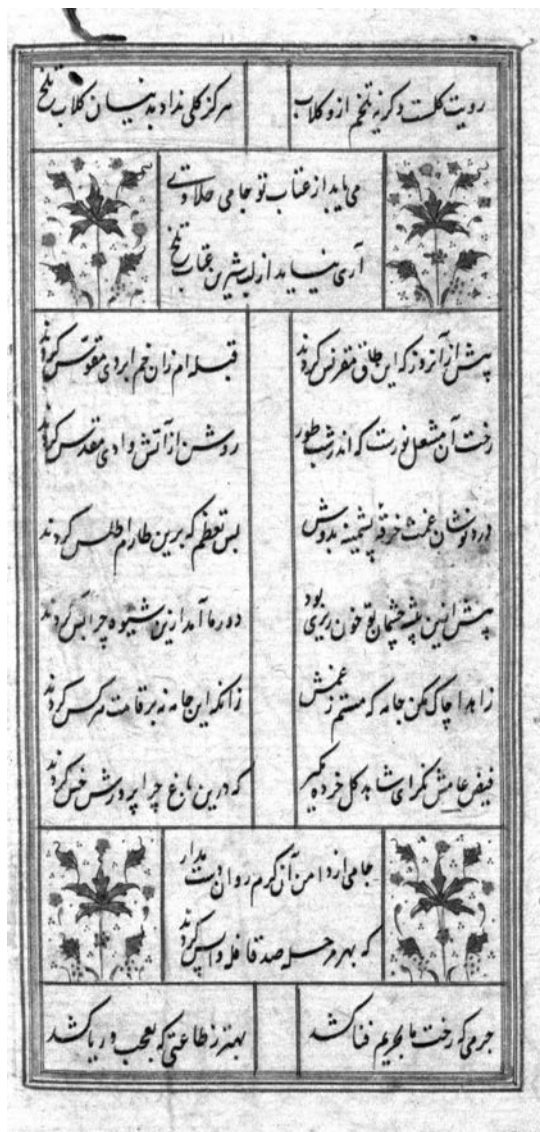 رویت گلست و گریه تلخم ازو گلاب
هرگز گلی نداد بدینسان گلاب تلخ
می‌یابد از عتاب تو جامی حلاوتی
آری نمی‌آید از لب شیرین عتاب تلخ
پیش از آنروز که این طاق مقرنس کردند
قبله‌ام زان خم ابروی مقوس کردند
رخت آن مشعل نورست که اندر شب طور
روشن از آتش وادی مقدس کردند
درد نوشان غمت خرقه پشمینه بدوش
بس تعظم که برین طارم اطلس کردند
پیش ازین پیشه چشمان تو خون ریزی بود
دور ما آمد ازین شیوه چرا بس کردند
زاهدا چاک مکن جامه که مستم ز غمش
زانکه این جامه نه بر قامت هر کس کردند
فیض عامش نگر ای شاهد گل خرده مگیر
که درین باغ چرا پرورش خس کردند
جامی از دامن آن گرم روان دست مدار
که بهر مرحله صد قافله واپس کردند
جرمی که رخت ما بحریم فنا کشد
بهتر ز طاعتی که بعجب و ریا کشد